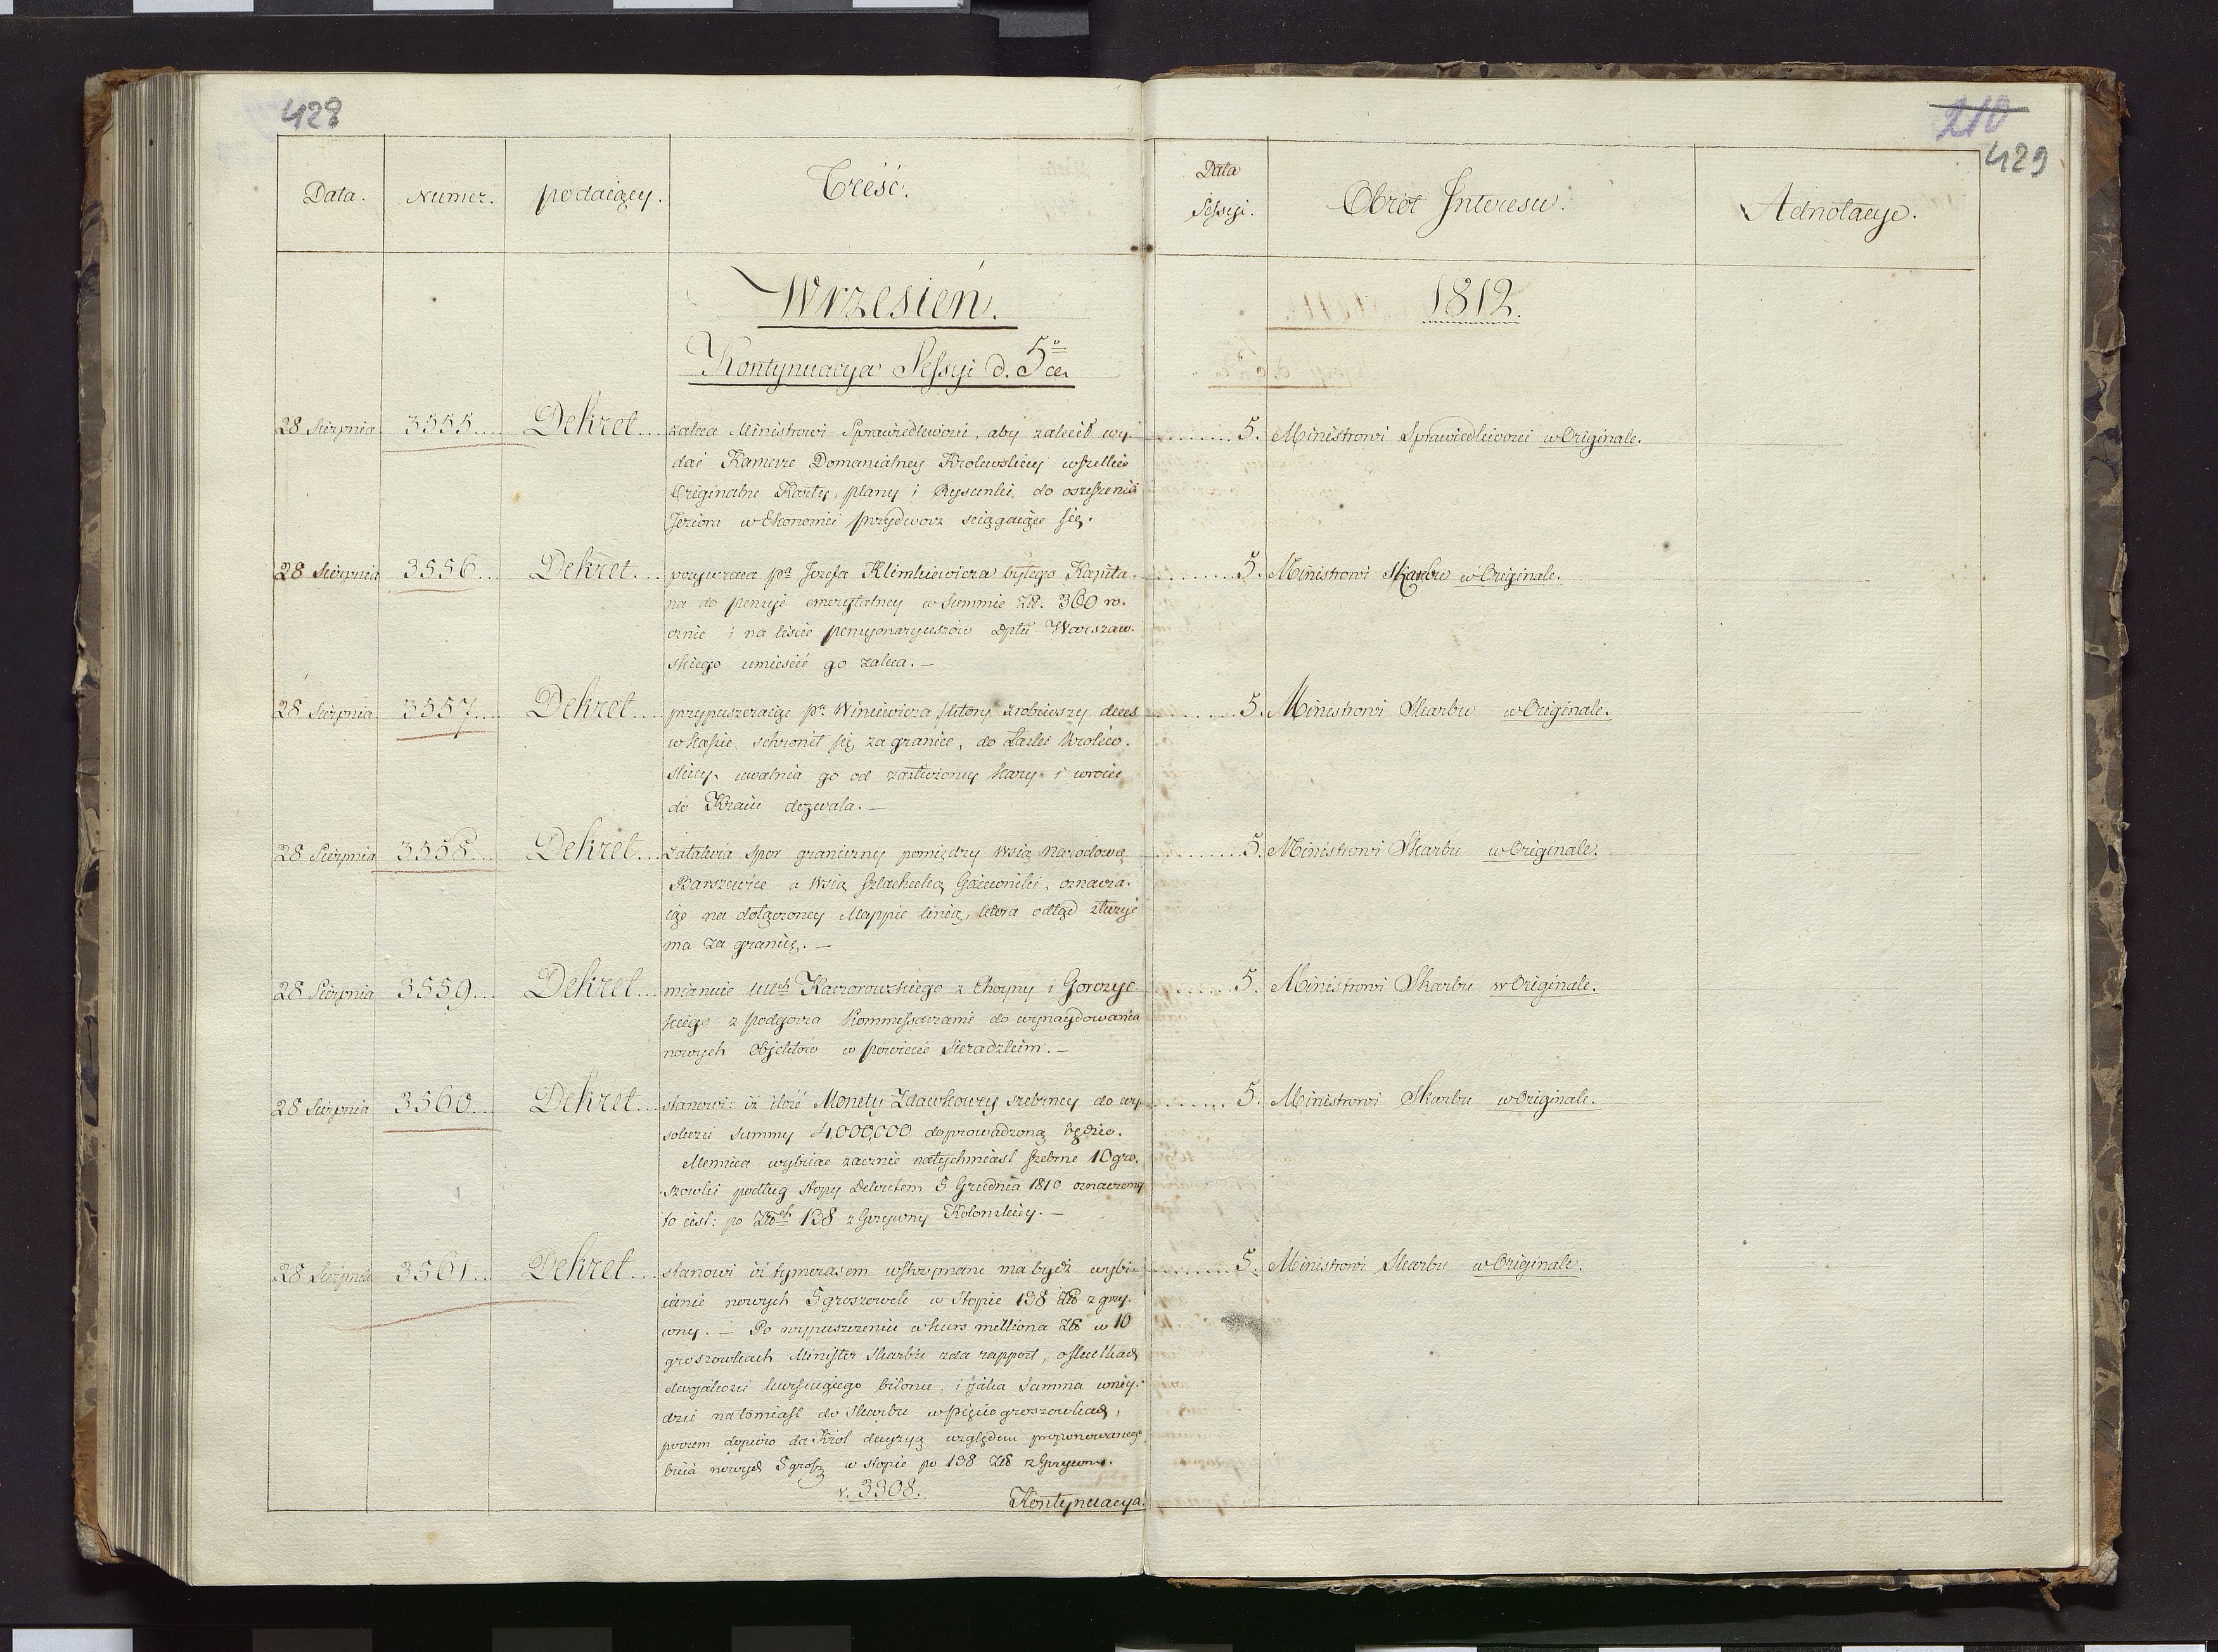 428
210
429
Data. Numer. podaiący. Treść. Data Sessyi. Obrót Interesu. Adnotacye.
Wrzesień. 1812.
Kontynuacya Sessyi d. 5º ca.
28 Sierpnia 3555.... Dekret.... zaleca Ministrowi Sprawiedliwości, aby zalecił wy- ........ 5. Ministrowi Sprawiedliwosci w Originale.
dać Kamerze Domanialney Krolewskiey wszelkie
Originalne Karty, plany i Rysunki do osuszenia
Jeziora w Ekonomii przydworz sciągaiące się.
28 Sierpnia 3556... Dekret.... przywraca pª Jozefa Klimkiewicza byłego Kapita- ........ 5. Ministrowi Skarbu w Originale.
na do pensyi emerytalney w Summie Zł. 360 ro-
cznie i na liście pensyonaryuszów Dptu Warszaw-
skiego umieścić go zaleca. —
28 Sierpnia 3557.... Dekret.... przypuszczaiąc pª Winiewicza, ktory zrobiwszy deces ........ 5. Ministrowi Skarbu w Originale.
w kassie, schronił się za granice, do Łaski Krolew-
skiey, uwalnia go od zasłużoney kary i wrócić
do Kraiu dozwala. —
28 Sierpnia 3558... Dekret.... Załatwia spor graniczny pomiędzy Wsią Narodową ........ 5. Ministrowi Skarbu w Originale.
Barszewice a Wsią Szlachecką Gaiewniki, oznacza-
iąc na dołączoney Mappie linią, ktora odtąd służyć
ma za granicę. —
28 Sierpnia 3559... Dekret.... mianuie UUch Kaczorowskiego z Choyny i Gorczyc- ........ 5. Ministrowi Skarbu w Originale.
kiego z Podgorza Kommissarzami do wynaydowania
nowych Objektów w powiecie Sieradzkim. —
28 Sierpnia 3560... Dekret.... stanowi: iż ilość Monety Zdawkowey srebrney do wy- ........ 5. Ministrowi Skarbu w Originale.
sokości summy 4,000,000 doprowadzoną będzie.
Mennica wybiiac zacznie natychmiast srebrne 10 gro-
szowki podług stopy Dekretem 5 Grudnia 1810 oznaczoney
to iest: po Złoch 138 z Grzywny Kolonskiey. —
28 Sierpnia 3561... Dekret.... stanowi iż tymczasem wstrzymane ma bydź wybi- ........ 5. Ministrowi Skarbu w Originale.
ianie nowych 5 groszowek w stopie 138 Zło z grzy-
wny. — Po wypuszczeniu w kurs milliona Zło w 10
groszowkach Minister Skarbu zda rapport, o skutkach
dwojakości kursuiącego bilonu, i jaka Summa wniy-
dzie natomiast do Skarbu w Pięcio groszowkach,
poczem dopiero da Król decyzyą względem proponowanego
bicia nowych 5 grosz w stopie po 138 Zło z Grzywny.
v. 3308.
Kontynuacya.